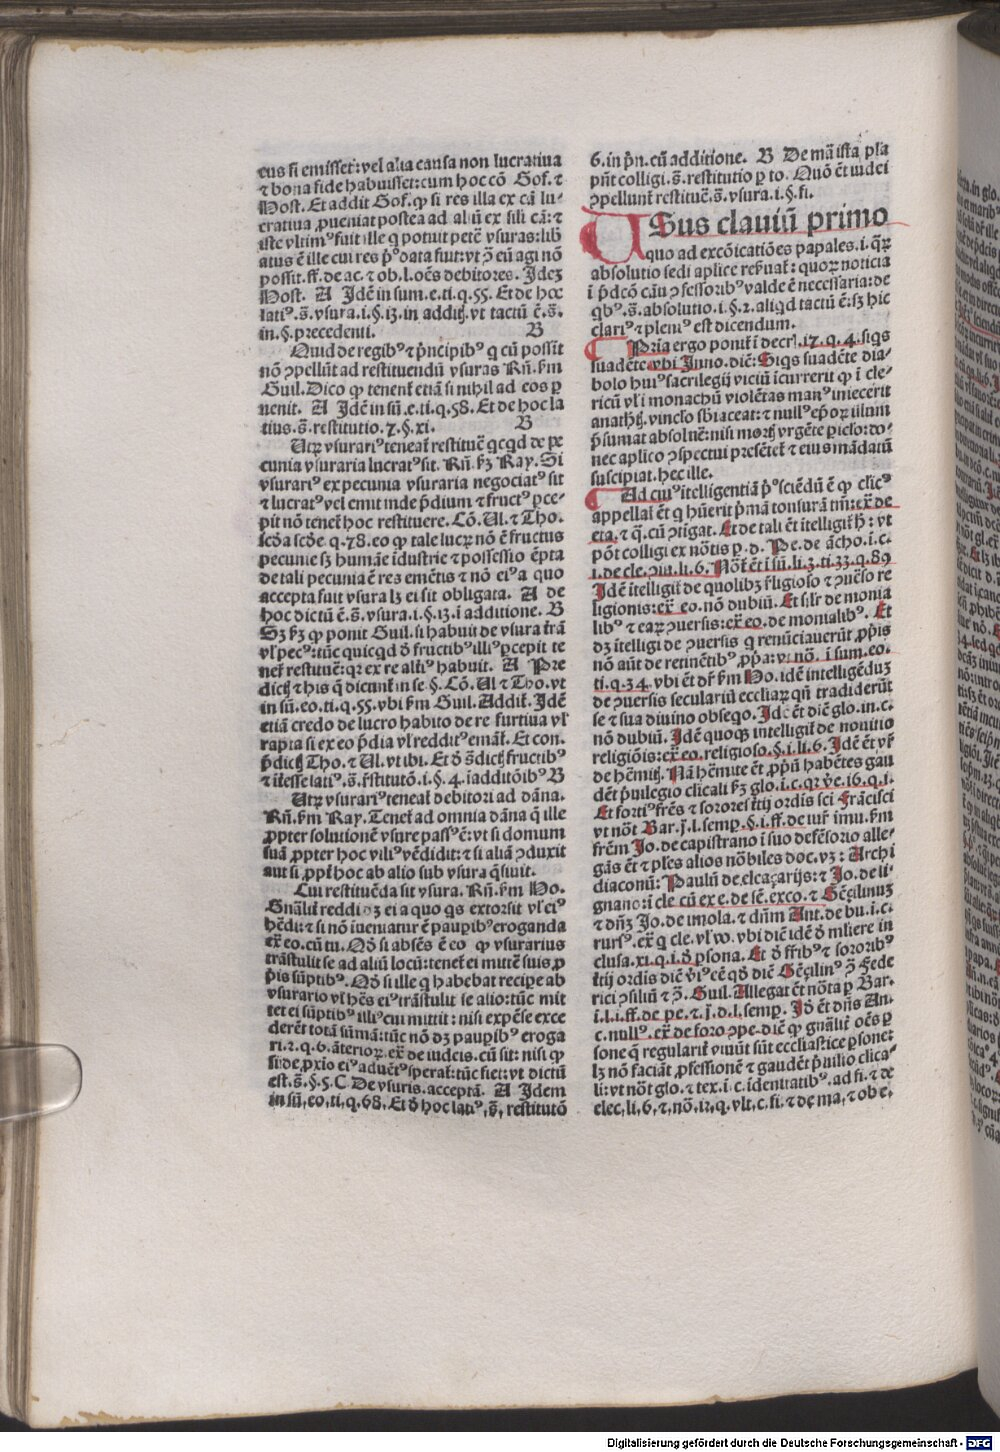 eus si emisset: vel alia causa non lucratiua
⁊ bona fide habuisset: cum hoc cō Gof. ⁊
Host. Et addit Gof. ꝙ si res illa ex cā lu-
cratiua ꝓueniat postea ad aliū ex sili cā: ⁊
iste vltimꝰ fuit ille q potuit petē vsuras: lib
atus ē ille cui res pꝰ data fuit: vt ꝯ̄ eū agi nō
possit. ff. de ac. ⁊ ob. l. oēs debitores. Idez
Host. A Idē in sum. e. ti. q. 55. Et de hoc
latiꝰ. s̄. vsura. i. §. 13. in addit̄. vt tactū ē. s̄.
in. §. precedenti. B
Quid de regibꝰ ⁊ pͥncipibꝰ q cū possīt
nō ꝯpellūt ad restituendū vsuras Rn̄. ẜm
Guil. Dico ꝙ tenent̄ etiā si nihil ad eos ꝑ
uenit. A Idē in sū. e. ti. q. 58. Et de hoc la
tius. s̄. restitutio. 7. §. xi. B
Utrꝫ vsurariꝰ teneat̄ restituē qcqd de pe
cunia vsuraria lucratꝰ sit. Rn̄. ẜꝫ Ray. Si
vsurariꝰ ex pecunia vsuraria negociatꝰ sit
⁊ lucratꝰ vel emit inde p̄dium ⁊ fructꝰ ꝑce-
pit nō tenet̄ hoc restituere. Cō. Ul. ⁊ Tho.
scd̄a scd̄e. q. 78. eo ꝙ tale lucrꝫ nō ē fructus
pecunie sꝫ humāe īdustrie ⁊ possessio ēpta
de tali pecunia ē res emētis ⁊ nō eiꝰ a quo
accepta fuit vsura lꝫ ei sit obligata. A de
hoc dictū ē. s̄. vsura. i. §. 13. ī additione. B
Sꝫ ẜꝫ ꝙ ponit Guil. si habuit de vsura tr̄ā
vl̄ pecꝰ: tūc quicqd ð fructibꝰ illiꝰ ꝑcepit te
net̄ restituē: qꝛ ex re aliꝰ habuit. A Pre
dictꝫ ⁊ his q̄ dicunt̄ in se. §. Cō. Ul ⁊ Tho. vt
in sū. eo. ti. q. 55. vbi ẜm Guil. Addit̄. Idē
etiā credo de lucro habito de re furtiua vl̄
rapta si ex eo p̄dia vl̄ redditꝰ emāt̄. Et con.
p̄dictꝫ Tho. ⁊ Ul. vt ibi. Et ð s̄dictꝫ fructibꝰ
⁊ īteresse latiꝰ. s̄. r̄stitutō. i. §. 4. ī additōibꝰ B
Utrꝫ vsurariꝰ teneat̄ debitori ad dāna.
Rn̄. ẜm Ray. Tenet̄ ad omnia dāna q̄ ille
ꝓpter solutionē vsure passꝰ ē: vt si domum
suā ꝓpter hoc viliꝰ vēdidit: ⁊ si aliā ꝯduxit
aut si ꝓpt̄ hoc ab alio sub vsura q̄siuit.
Cui restituēda sit vsura. Rn̄. ẜm Ho.
Gnāl̄r reddi ꝺꝫ ei a quo qs extorsit vl̄ eiꝰ
hēdi: ⁊ si nō īueniatur ē paupibꝰ eroganda
ex̄. eo. cū tu. Qð si absēs ē eo ꝙ vsurarius
trāstulit se ad aliū locū: tenet̄ ei mittē suis ꝓ
pͥis sūptibꝰ. Qð si ille q habebat recipe ab
vsurario vl̄ hēs eiꝰ trāstulit se alio: tūc mit
tet ei sūptibꝰ illiꝰ cui mittit: nisi expēse exce
derēt totā sūmā: tūc nō dꝫ paupibꝰ eroga
ri. 2. q. 6. āteriorꝫ. ex̄. de iudeis. cū sit: nisi ꝙ
si de ꝓxio eiꝰ aduētꝰ sperat̄: tūc fiet: vt dictū
est. s̄. §. 5. C. De vsuris. acceptā. A Idem
in sū, eo, ti, q. 68. Et ð hoc latiꝰ, s̄, restitutō
6. in pͥn. cū additione. B De mā ista pl̄a
pn̄t colligi. s̄. restitutio ꝑ to. Quō ēt iudei
ꝯpellunt̄ restituē. s̄. vsura. i. §. fi.
USus clauiū primo
quo ad excōicatiōes papales. i. q̄ꝝ
absolutio sedi aplice ref̄uat̄: quoꝝ noticia
ī p̄dcō cāu ꝯfessoribꝰ valde ē necessaria: de
qbꝰ. s̄. absolutio. i. §. 2. aliqd tactū ē: sꝫ hic
clariꝰ ⁊ pleniꝰ est dicendum.
Pͥria ergo ponit̄ ī decr̄. 17. q. 4. siqs
suadēte vbi Inno. dic̄: Siqs suadēte dia-
bolo huiꝰ sacrilegij viciū īcurrerit ꝙ ī cle-
ricū vl̄ ī monachū violētas manꝰ iniecerit
anathꝫ. vinclo sb̄iaceat: ⁊ nullꝰ ep̄oꝝ illum
p̄sumat absoluē: nisi mortꝫ vrgēte piclo: do-
nec aplico ꝯspectui presētet̄ ⁊ eius mādatū
suscipiat. hec ille.
Ad cuiꝰ itelligentiā pꝰ sciēdū ē ꝙ clicꝰ
appellat̄ ēt q hūerit pͥmā tonsurā tm̄: ex̄. de
eta. ⁊ q̄. cū ꝯtigat. Et de tali ēt ītelligit̄ h̄: vt
pōt colligi ex nōtis ꝑ. d. Pe. de ācho. i. c.
i. de cle. ꝯiu. li. 6. Nōt̄ ēt ī sū. li. 3. ti. 33. q. 89
Idē ītelligit̄ de quolibꝫ r̄ligioso ⁊ ꝯuēso re
ligionis: ex̄. eo. nō dubiū. Et sil̄r de monia
libꝰ ⁊ eaꝝ ꝯuersis: ex̄. eo. de monialibꝰ. Et
dꝫ ītelligi de ꝯuersis q renūciauerūt ꝓpͥis
nō aūt de retinētibꝰ ꝓpͥa: vt nō. ī sum. eo.
ti. q. 34. vbi ēt dr̄ ẜm Ho. idē intelligēduꝫ
de ꝯuersis seculariū eccliaꝝ qn̄ tradiderūt
se ⁊ sua diuino obseqo. Idē ēt dic̄ glo. in. c.
nō dubiū. Idē quoqꝫ intelligit̄ de nouitio
religiōis: ex̄. eo. religioso. §. i. li. 6. Idē ēt vr̄
de hēmitꝫ. Nā hēmite ēt ꝓpͥū habētes gau
dēt pͥuilegio clicali ẜꝫ glo. i. c. qꝛ ve. 16. q. i.
Et fortiꝰ fr̄es ⁊ sorores t̄tij ordīs sci Frācisci
vt nōt̄ Bar. ī. l. semp. §. i. ff. de iur̄ imu. ẜm
frēm Jo. de capistrano ī suo defēsorio alle-
gās ēt ⁊ pl̄es alios nōbiles doc. vꝫ: Archi
diaconū: Paulū de elcaçarijs: ⁊ Jo. de li-
gnano: ī cle cū ex e. de sē. exco. ⁊ Gēçilinuꝫ
⁊ dn̄ꝫ Jo. de imola. ⁊ dn̄m Ant. de bu. i. c.
rursꝰ. ex̄. q cle. vl̄ vo. vbi dic̄ idē ð mliere in
clusa. xi. q. i. ð ꝑsona. Et ð fr̄ibꝰ ⁊ sororibꝰ
t̄tij ordīs dic̄ vͥicē qð dic̄ Gēçilinꝰ ꝯ̄ Fede
rici ꝯsiliū ⁊ ꝯ̄. Guil. Allegat ēt nōta ꝑ Bar.
i. l. i. ff. de pe. ⁊ ī. d. l. semp. Jð ēt dn̄s An.
c. nullꝰ. ex̄. de foro ꝯpe. dic̄ ꝙ gnāl̄r oēs ꝑ
sone q̄ regularit̄ viuūt sūt eccliastice ꝑsone:
lꝫ nō faciāt ꝓfessionē ⁊ gaudēt pͥuilio clica-
li: vt nōt glo. ⁊ tex. i. c. identratibꝰ. ad fi. ⁊ de
elec, li, 6, ⁊, nō. 12, q, vlt, c, fi, ⁊ de ma, ⁊ ob e.
Digitalisierung gefördert durch die Deutsche Forschungsgemeinschaft - DFG